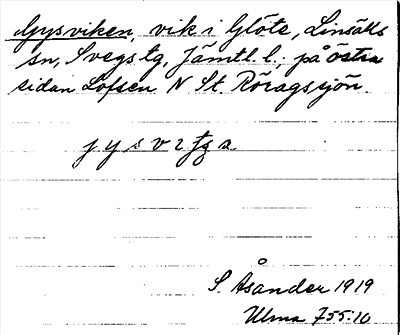 Gysviken, vik i Glöte, Linsälls
sn, Svegs tg, Jämtl. l.; på östra
sidan Lofsen N St. Röragssjön.
j y s v
S. Åsander 1919
Ulma 755:10